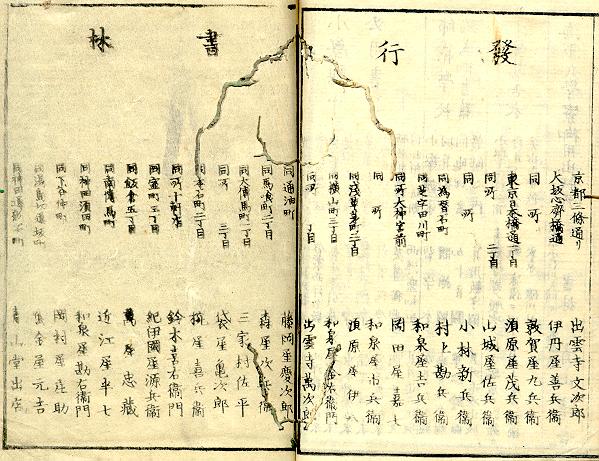 發行書林
京都三條通リ 出雲寺文次郎
大坂心齊橋通 伊丹屋善兵衞
同所 敦賀屋九兵衞
東京日本橋通一丁目 須原屋茂兵衞
同所二丁目 山城屋佐兵衞
同所 小林新兵衞
同 村上勘兵衞
同芝宇田川町 和泉屋吉兵衞
同所大神宮前 岡田屋嘉七
同所 和泉屋市兵衞
同浅草茅町二丁目 須原屋伊八
同横山町三丁目 和泉屋金右衞門
同所 丁目 出雲寺萬次郎
同通油町 藤岡屋慶次郎
同馬喰町二丁目 森屋次兵衞
同大傳馬町二丁目 三家村佐平
同所三丁目 袋屋亀次郎
本石町二丁目 屋嘉兵衞
同所十軒店 鈴木喜右衞門
同室町三丁目 紀伊國屋源兵衞
同飯倉五丁目 萬屋忠藏
同南傳馬町 近江屋平七
同神田 町 和泉屋勘右衞門
同下谷仲町 岡村屋庄助
同浅草 町 屋元吉
同神田 町 山堂出店